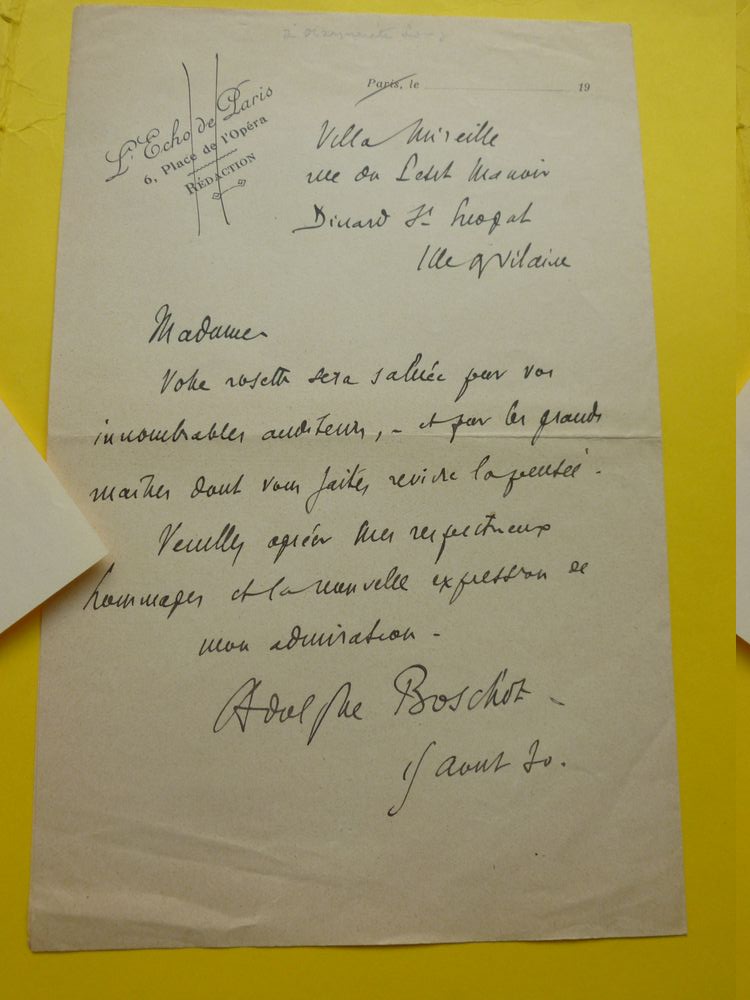 à Marguerite Long
L'Echo de Paris
6, Place de l'Opéra
RÉDACTION
Paris, le 19
Villa Mireille
rue du Petit Manoir
Dinard St Enogat
Ille & Vilaine
Madame
Votre rosette sera saluée par vos
innombrables auditeurs, – et par les grands
maîtres dont vous faites revivre la pensée.
Veuillez agréer mes respectueux
hommages et la nouvelle expression de
mon admiration –
Adolphe Boschot –
août 30.